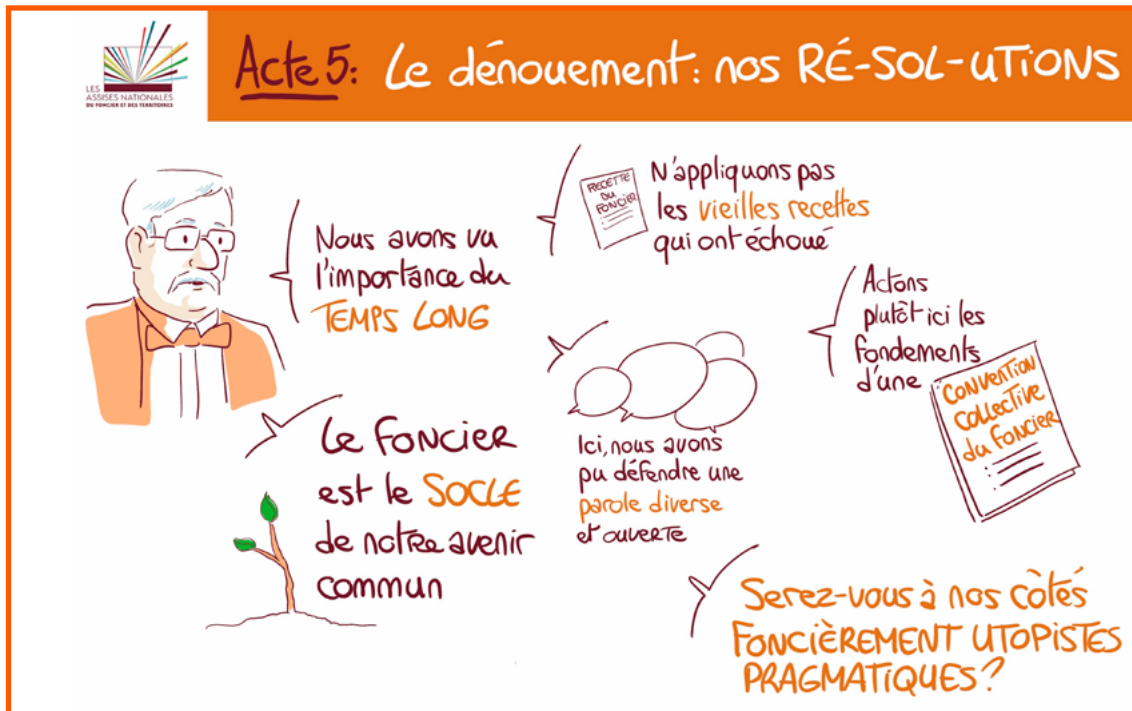 LES
ASSISES NATIONALES
DU FONCIER ET DES TERRITOIRES
Acte 5: Le dénouement: nos RÉ-SOL-UTIONS
Nous avons vu
l'importance du
TEMPS LONG
RECETTE
DU
FONCIER
N'appliquons pas
les vieilles recettes
qui ont échoué
Actons
plutôt ici les
fondements
d'une
CONVENTION
COLLECTIVE
du FONCIER
Le FONCIER
est le SOCLE
de notre avenir
commun
Ici, nous avons
pu défendre une
parole diverse
et ouverte
Serez-vous à nos côtés
FONCIÈREMENT UTOPISTES
PRAGMATIQUES?